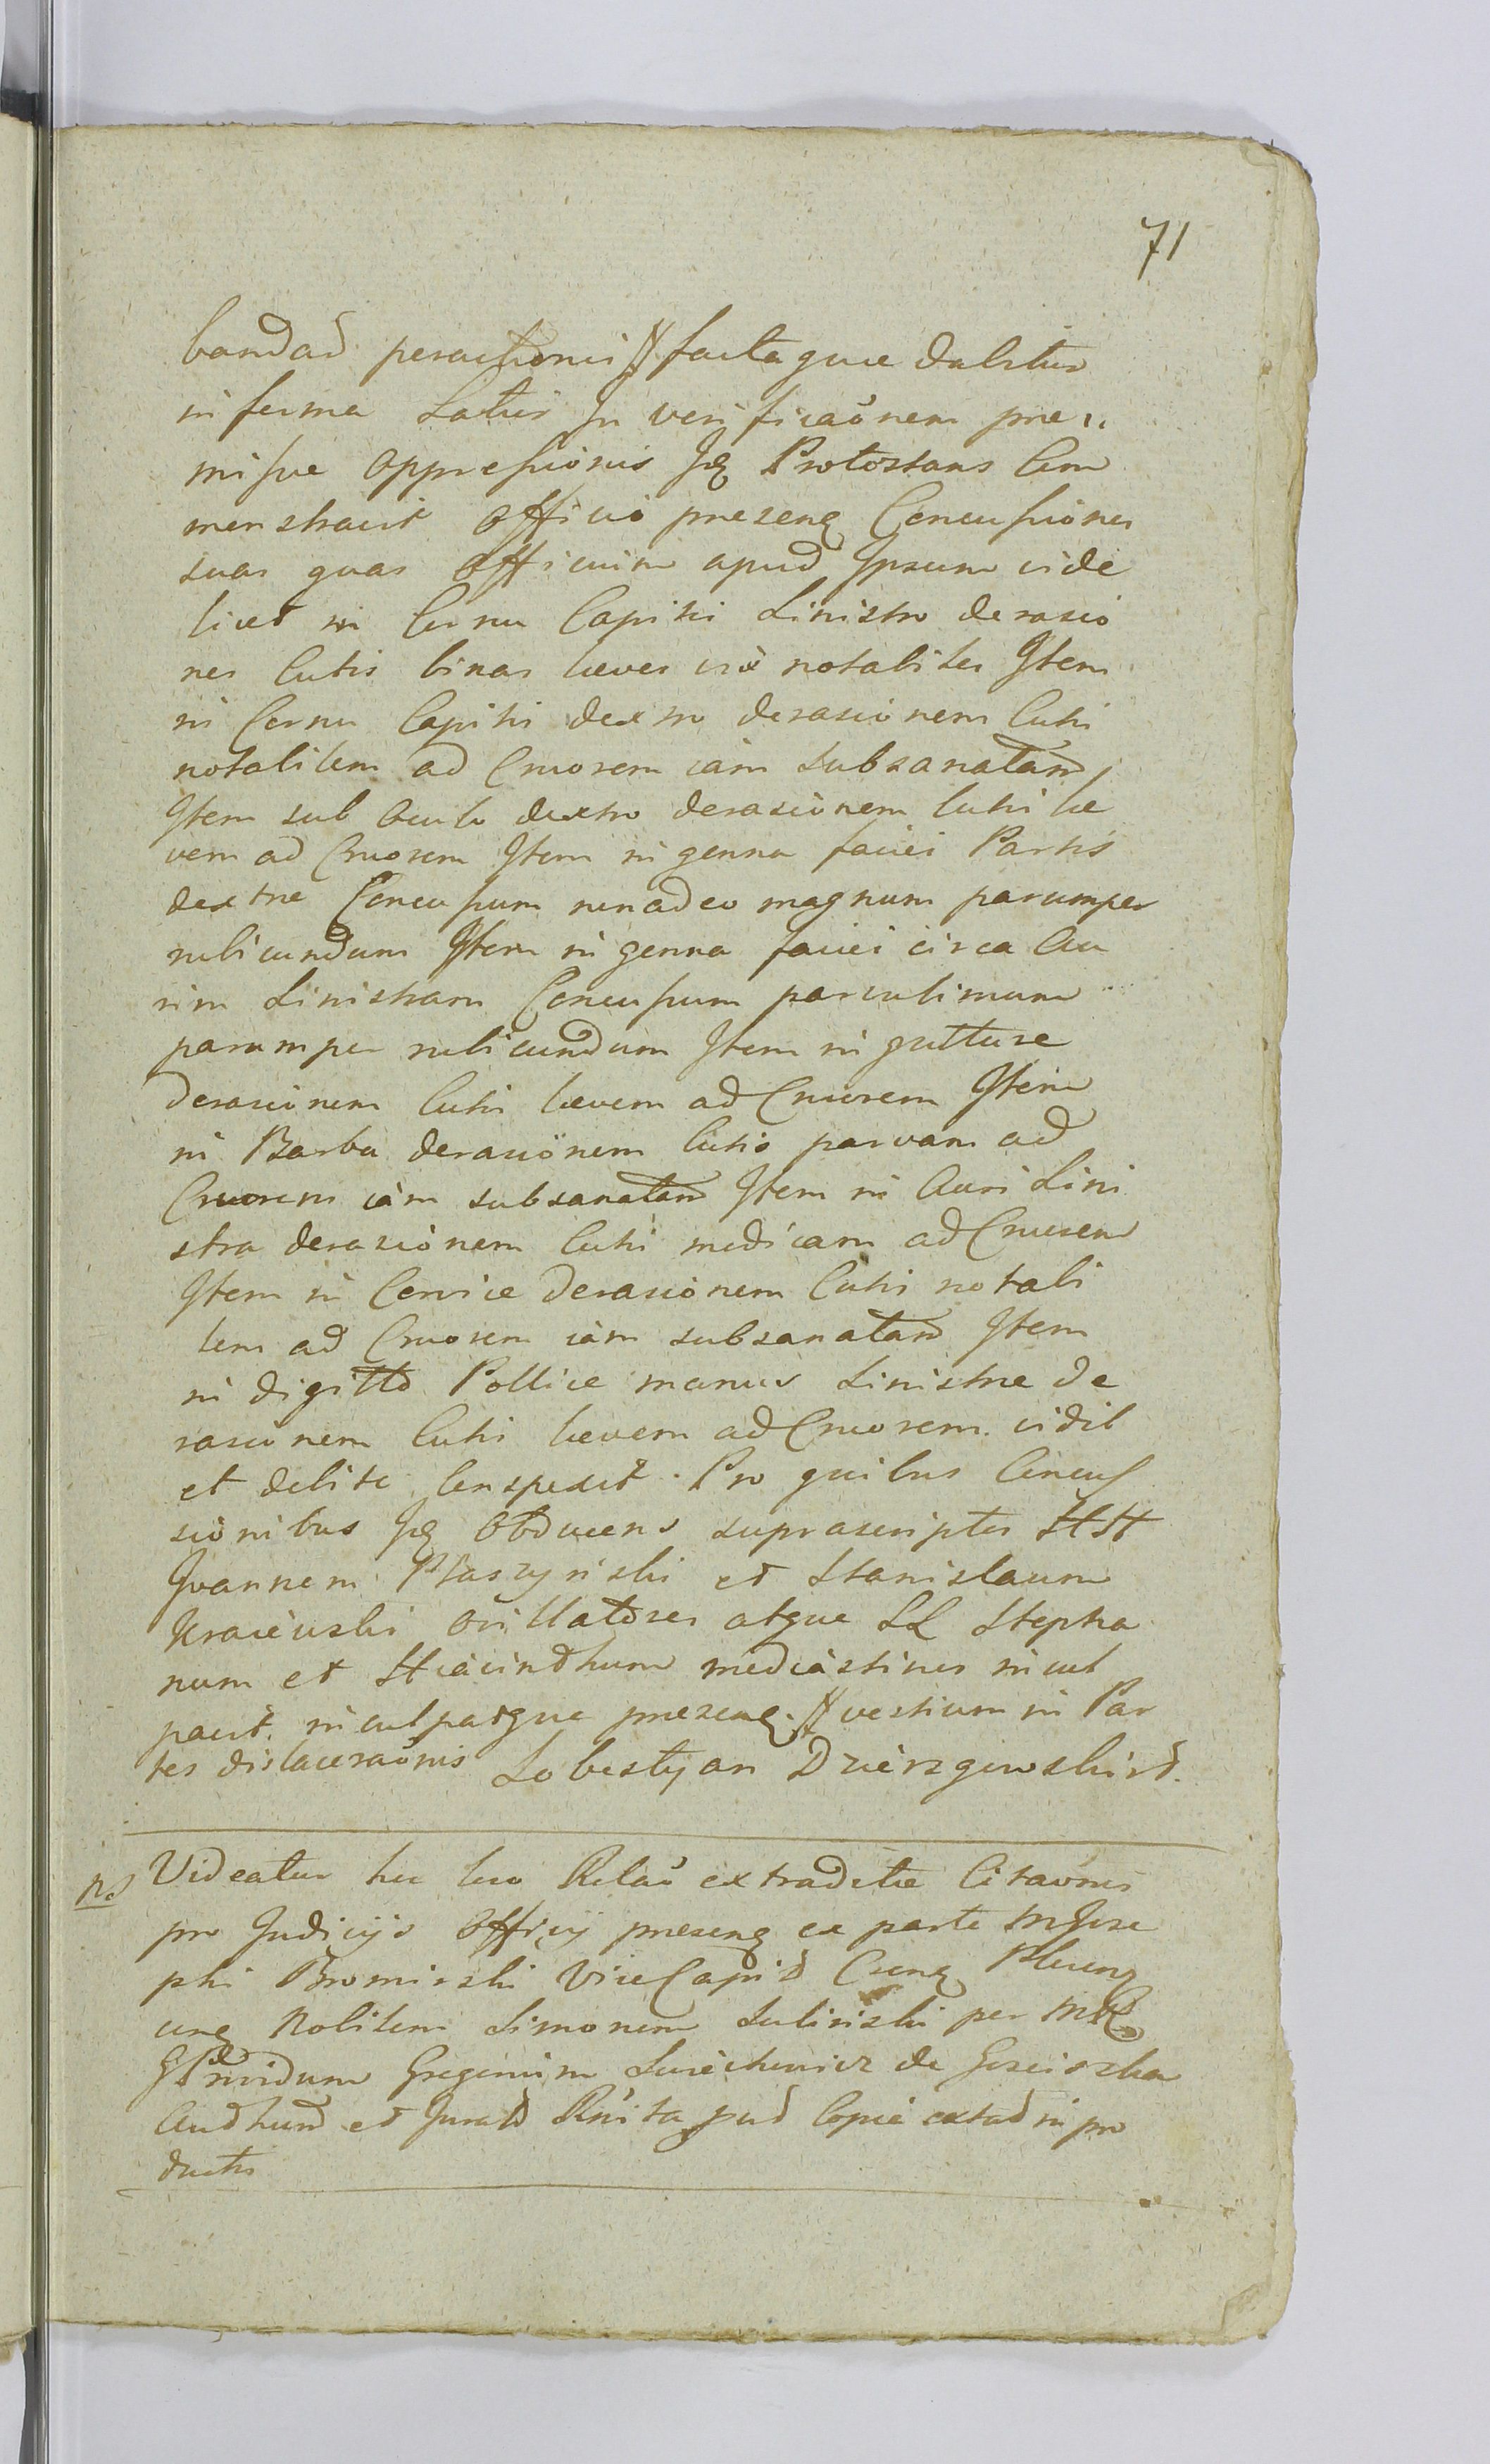 71
bandas peractionis # factaque dabitur
in forma Latius In verificaönem prae
missae oppressionis Idq Protestans Com
menstravit Officio praesenq Concussiones
suas quas Officium apud Ipsum vide
licet in Cornu Capitis Sinistro derasio
nes Cutis binas laeves notabiles Item
in Cornu Capitis dextro derasionem Cutis
notabilem ad Cruorem iàm subsanatam
Item sub Oculo dextro derasionem Cutis lae
vem ad Cruorem Item in genna faciei Partis
dextrae Concussum non adeo magnum parumper
rubicundum Item in genna faciei circa Au
rim Sinistram Concussum parvulimum
parumper rubicundum Item in gutture
derasionem Cutis laevem ad Cruorem Item
in Barba derasionem Cutis parvam ad
Cruorem iàm subsanatam Item in Auri Sini
stra derasionem Cutis modicam ad Cruorem
Item in Cervice derasionem Cutis notabi
lem ad Cruorem iàm subsanatam Item
in digitto Pollice manus Sinistrae de
rasionem Cutis laevem ad Cruorem vidit
et debite Conspexit. Pro quibus Concus
sionibus Idq Obducens suprascriptos HH
Joannem Ptaszynski et Stanislaum
Kraiewski Ovillatores atque LL Stepha
num et Hiacinthum mediastinos incul
pavit inculpatque praesenq. # vestium in Par
tes dislaceraönis Sobestyan Dzierzgowski
NB Videatur hic loco Relaö extraditae Citaönis
pro Judicijs Officij praesenq ex parte M Jose
phi Bromirski Vice Capit
Nobilem Simonem Sulinski per
Providum Gregorium de
et Jurat pud Copia extad in pro
ductis